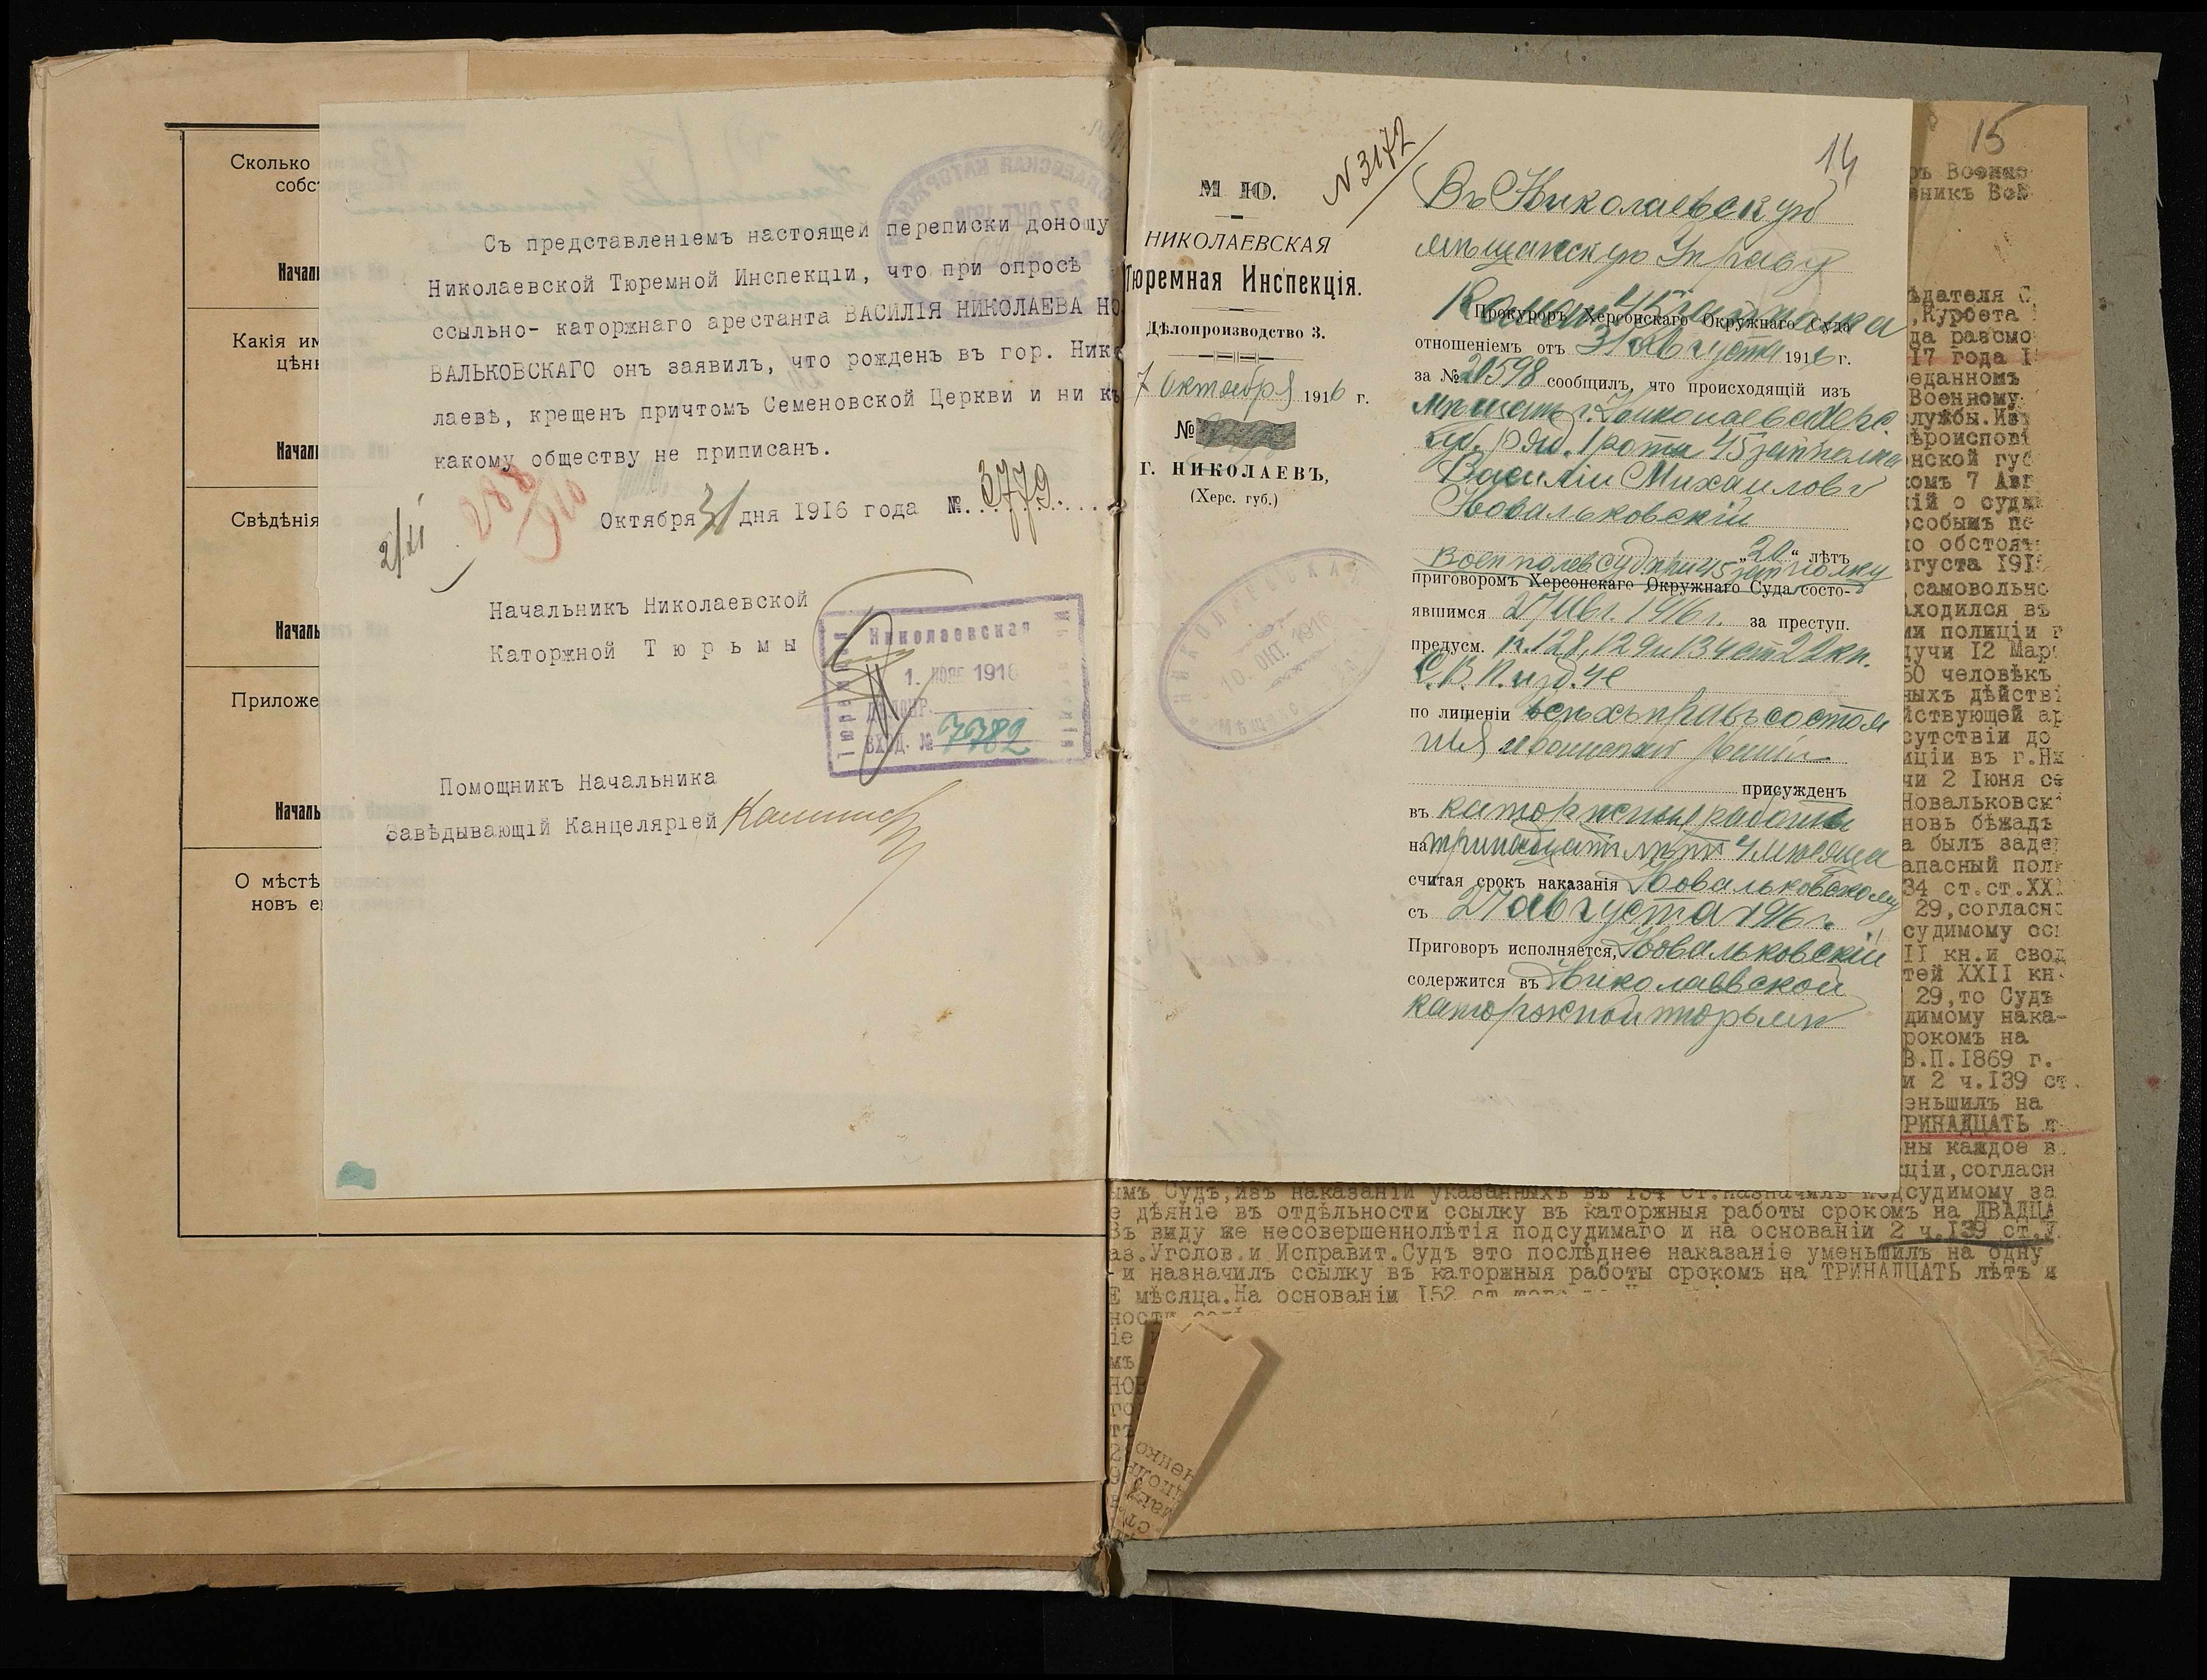 Сколько
собс
Началь
Какія им
цѣнн
Началь
Свѣдѣнія
Началь
Приложе
Началь
О мѣстѣ
новъ е
Съ представленіемъ настоящей переписки доношу
Николаевской Тюремной Инспекціи, что при опросѣ
ссыльно- каторжнаго арестанта ВАСИЛІЯ НИКОЛАЕВА НО
ВАЛЬКОВСКАГО онъ заявилъ, что рожденъ въ гор. Нико
лаевѣ, крещенъ причтомъ Семеновской Церкви и ни къ
какому обществу не приписанъ.
288
910
2/XI
Октября 31 дня 1916 года №. 3779.
Начальникъ Николаевской
Каторжной Тюрьмы
Николаевская
1. НОЯБ 1916
ВХОД. № 7782
Помощникъ Начальника
Завѣдывающій Канцеляріей
14
N 3172
М Ю.
НИКОЛАЕВСКАЯ
Тюремная Инспекція.
Дѣлопроизводство 3.
7 Октября 1916 г.
№
Г. НИКОЛАЕВЪ,
(Херс. губ.)
НИКОЛАЕВСКАЯ
10. ОКТ. 1916
Въ Николаевскую
мѣщанскую Управу
Прокуроръ Херсонскаго Окружнаго Суда
отношеніемъ отъ 31 Августа 1916 г.
за № 20598 сообщилъ, что происходящій изъ
мѣщанъ г. Николаева Херс.
губ. ряд. 1 роты 45 зап полка
Василій Михайловъ
Новальковскій
„20“ лѣтъ
Воен полев Суд при 45 зап полку
приговоромъ Херсонскаго Окружнаго Суда состо-
явшимся 27 Авг. 1916 г. за преступ.
предусм. п. 128, 129 и 134 ст 22 кн.
С.В.П. изд. 4е
по лишеніи всѣхъ правъ состоя
нія и воинскаго званія
присужденъ
въ каторжныя работы
на тринадцать лѣтъ 4 мѣсяца
считая срокъ наказанія Новальковскому
съ 27 августа 1916 г.
Приговоръ исполняется, Новальковскій
содержится въ Николаевской
каторжной тюрьмѣ
15
ръ Военно
еникъ Вое
ѣдателя С
,Курбета
да разсмо
17 года I
еданномъ
Военному
лужбы.Из
ѣроисповѣ
нской губ
комъ 7 Авг
ній о суди
особымъ по
по обстоят
вгуста 191
самовольно
аходился въ
ми полиціи г
дучи 12 Мар
50 человѣкъ
ныхъ дѣйстві
йствующей ар
сутствіи до
иціи въ г.Ни
чи 2 Іюня се
Новальковскі
новь бѣжалъ
а былъ задер
апасный полк
34 ст.ст.XXI
29,согласно
судимому осн
II кн.и свод
тей XXII кн.
29,то Судъ
димому нака-
рокомъ на
В.П.1869 г.
и 2 ч.139 ст.
еньшилъ на
РИНАДЦАТЬ л
ны каждое в
ціи,согласн
ымъ Судъ,изъ наказаній указанныхъ въ 134 ст.назначилъ подсудимому за
е дѣяніе въ отдѣльности ссылку въ каторжныя работы срокомъ на ДВАДЦА
Въ виду же несовершеннолѣтія подсудимаго и на основаніи 2 ч.139 ст.У
аз.Уголов.и Исправит.Судъ это послѣднее наказаніе уменьшилъ на одну
и назначилъ ссылку въ каторжныя работы срокомъ на ТРИНАДЦАТЬ лѣтъ и
Е мѣсяца.На основаніи 152 ст
ности